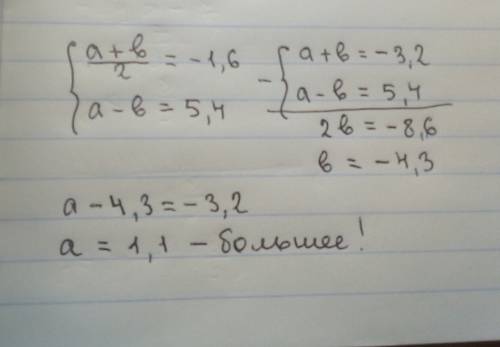 { a + b / 2 = -1,6
a - b = 5,4
- { a + b = -3,2
a - b = 5,4
2b = -8,6
b = -4,3
a - 4,3 = -3,2
a = 1,1 - большее!